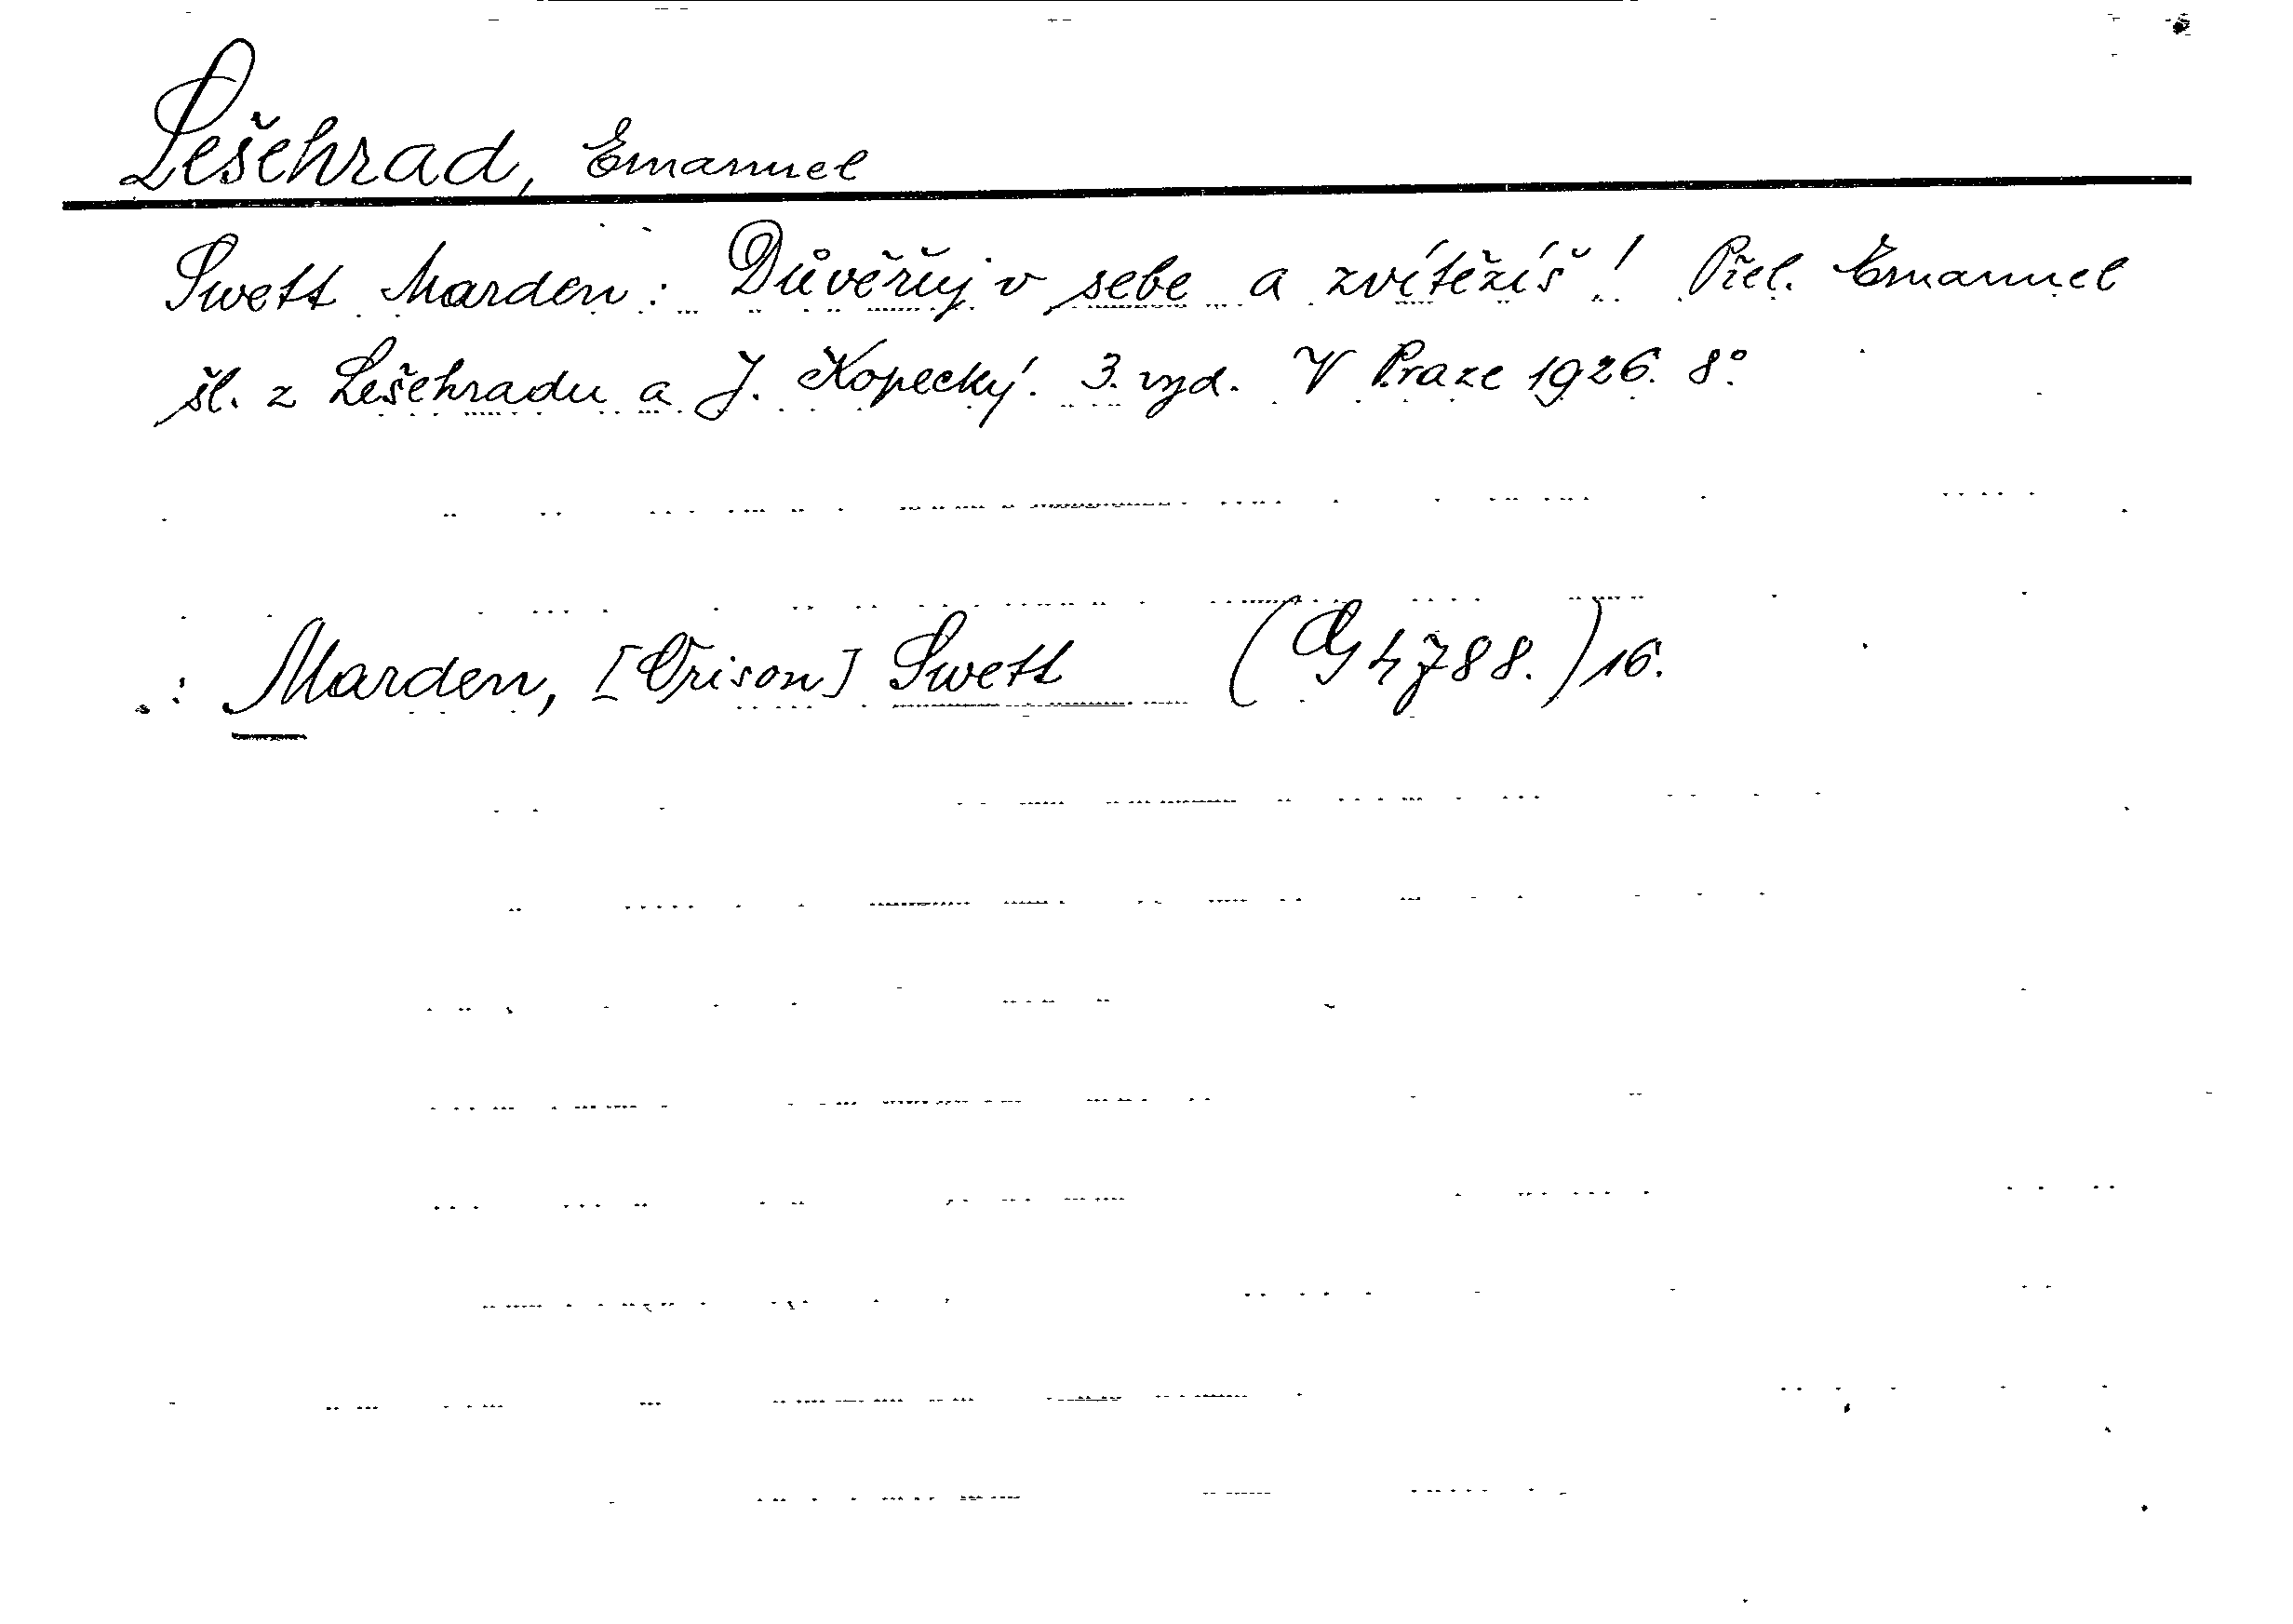 Lešehrad, Emanuel
Swett Marden: Důvěřuj v sebe a zvítězíš! Přel. Emanuel
šl. z Lešehradu a J. Kopecký. 3. vyd. V Praze 1926. 8°.
: Marden, [Orison] Swett (G 4788.) 16.